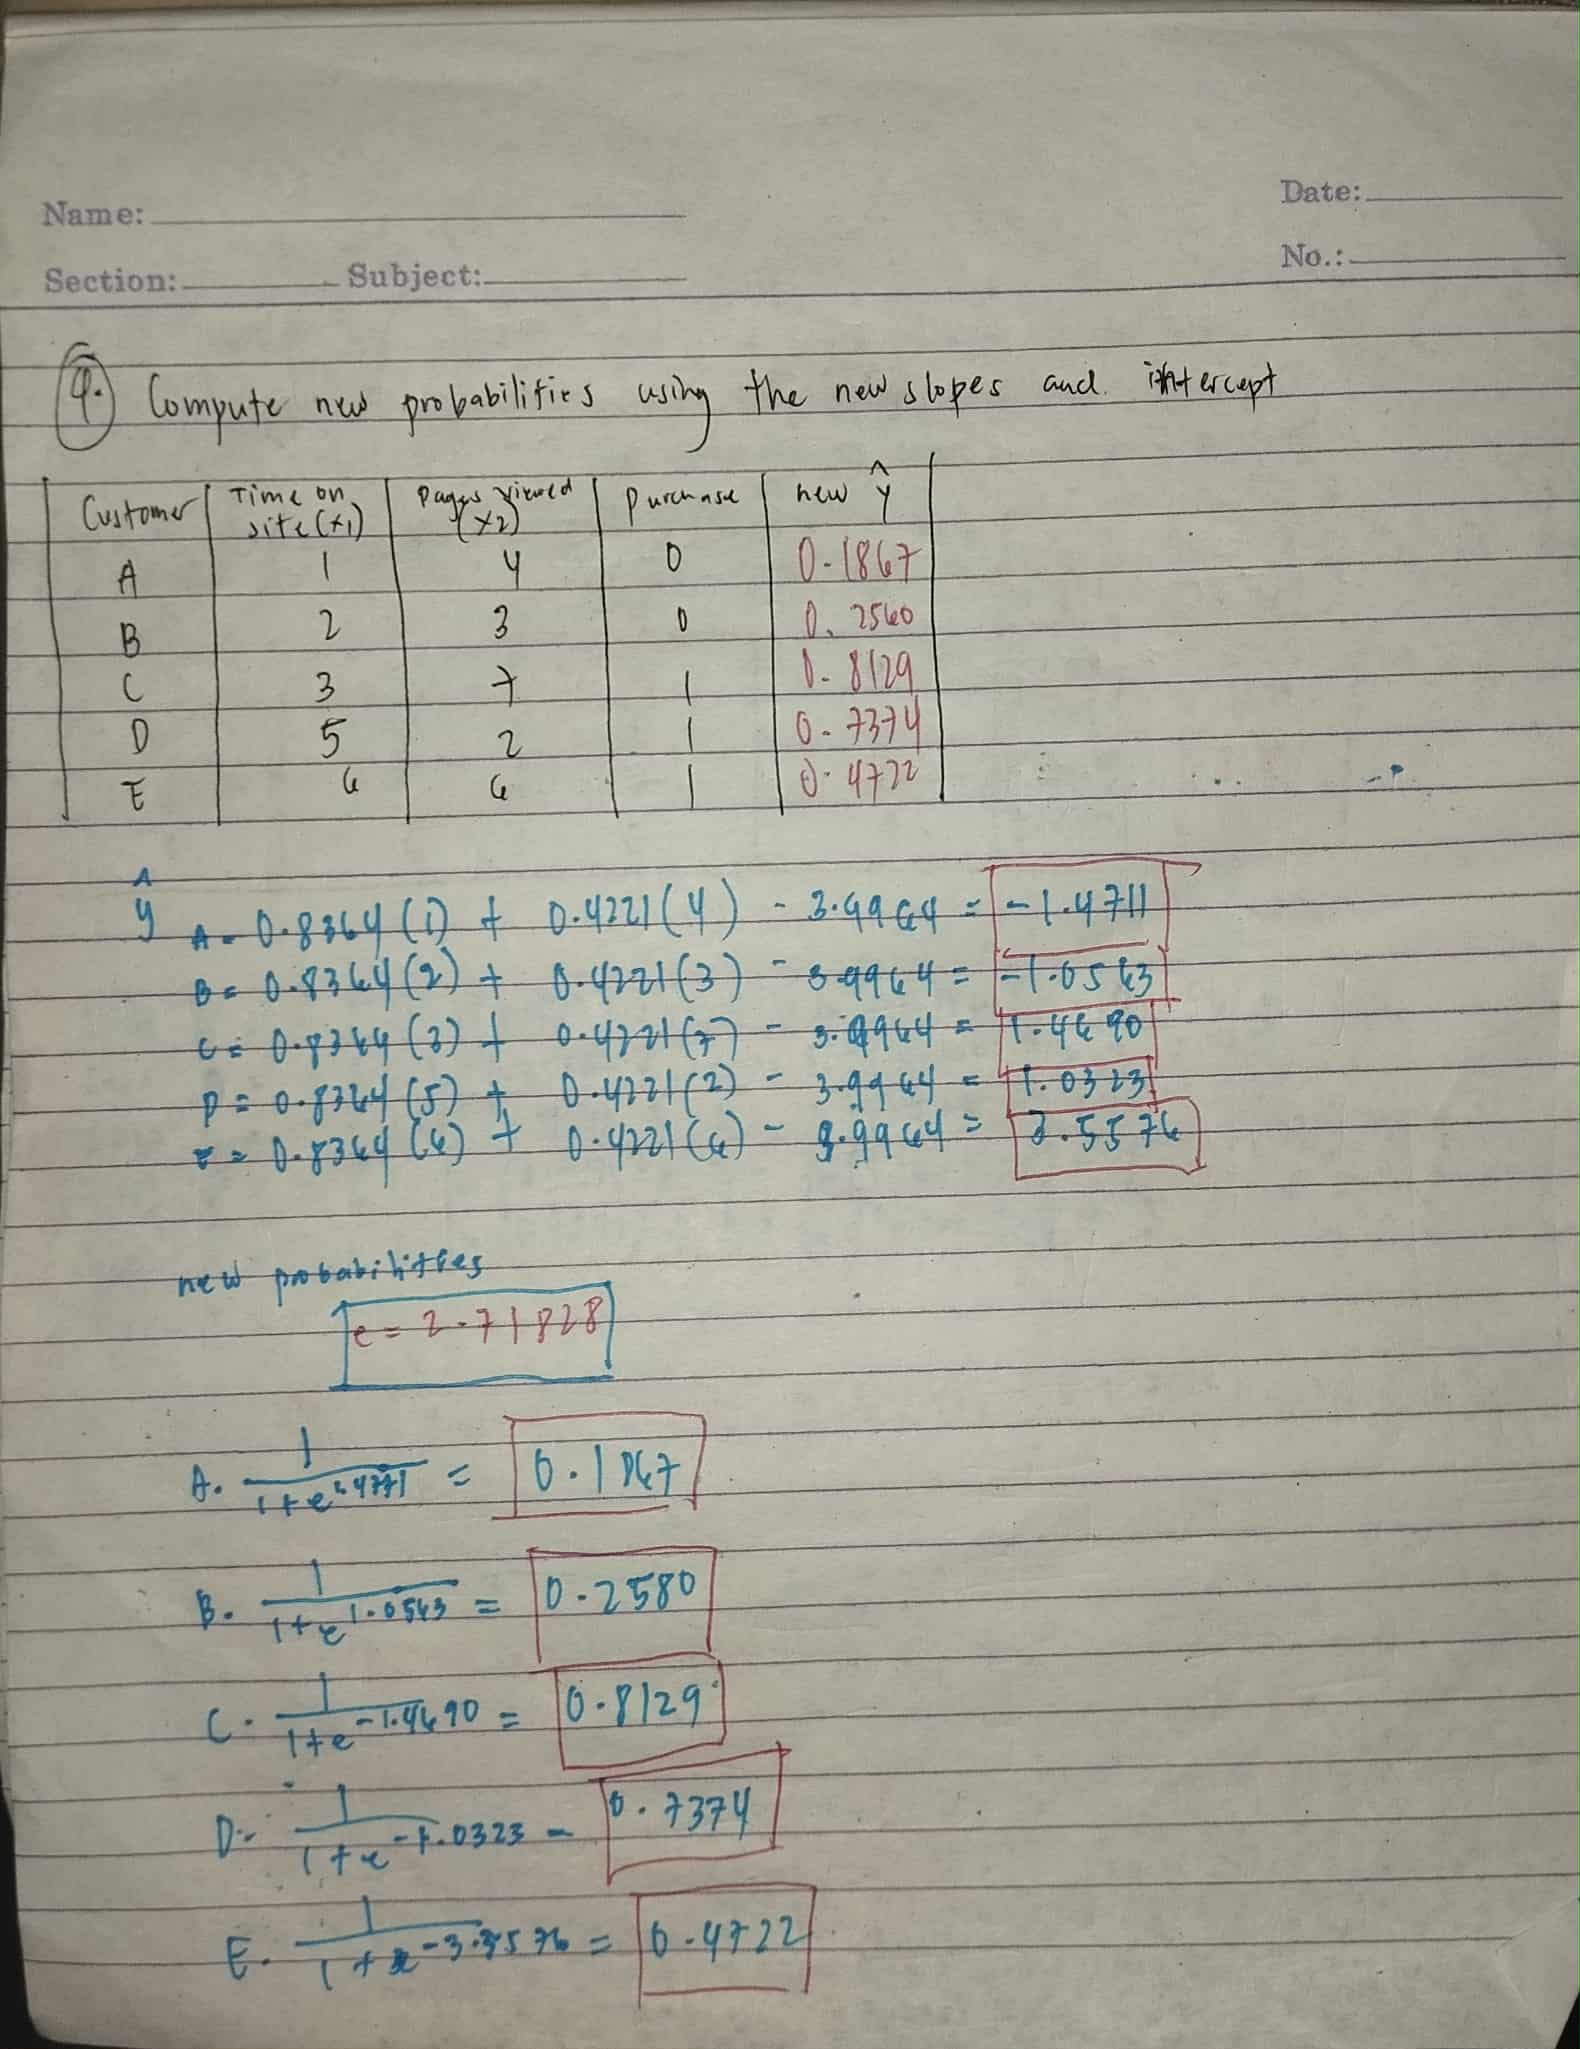 Name:
Date:
Section: Subject:
No.:
4. Compute new probabilities using the new slopes and intercept
Customer Time on site (x1) Pages viewed (x2) Purchase new ŷ
A 1 4 0 0.1867
B 2 3 0 0.2560
C 3 7 1 0.8129
D 5 2 1 0.7374
E 6 6 1 0.4722
ŷ
A = 0.8364 (1) + 0.4221 (4) - 3.9964 = -1.4711
B = 0.8364 (2) + 0.4221 (3) - 3.9964 = -1.0563
C = 0.8364 (3) + 0.4221 (7) - 3.9964 = 1.4690
D = 0.8364 (5) + 0.4221 (2) - 3.9964 = 1.0323
E = 0.8364 (6) + 0.4221 (6) - 3.9964 = 3.5576
new probabilities
e = 2.71828
A. 1/(1+e^1.4771) = 0.1867
B. 1/(1+e^1.0563) = 0.2580
C. 1/(1+e^-1.4690) = 0.8129
D. 1/(1+e^-1.0323) = 0.7374
E. 1/(1+e^-3.5576) = 0.4722